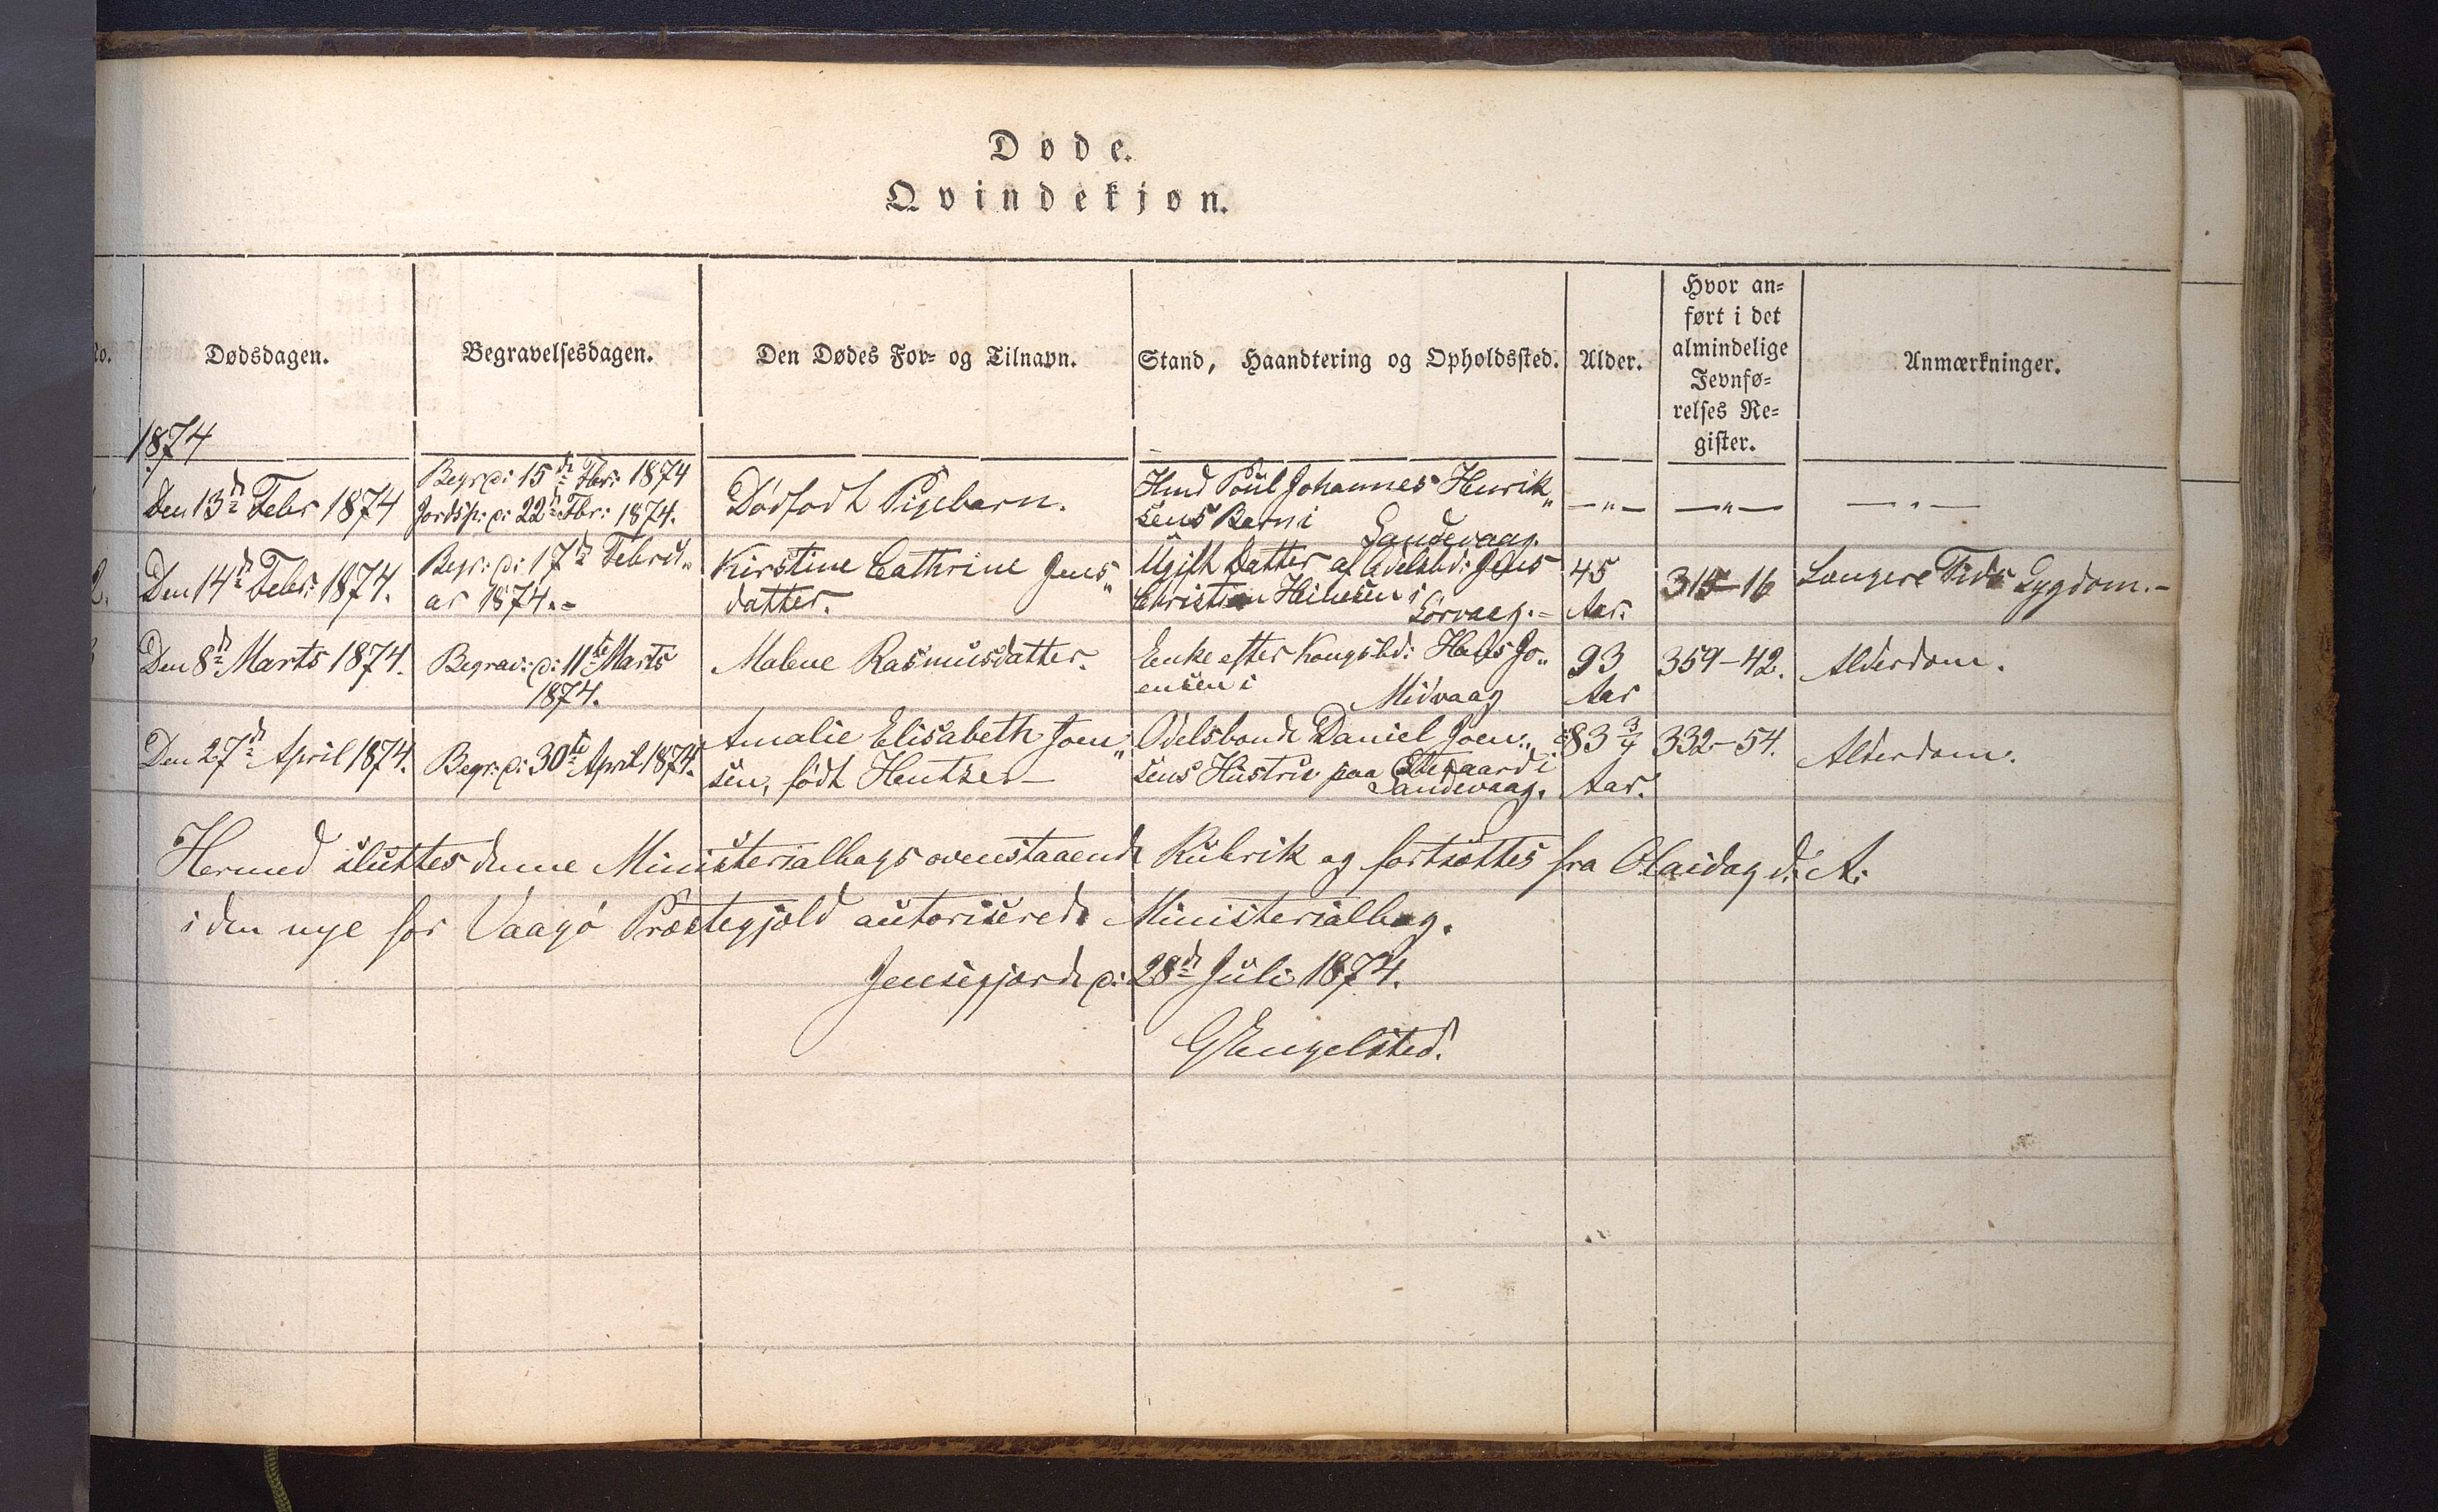 Døde.
Qvindekjøn.
No.
Dødsdagen.
Begravelsesdagen.
Den Dødes For- og Tilnavn.
Stand, Haandtering og Opholdssted.
Alder.
Hvor an-
ført i det
almindelige
Jevnfø-
relses Re-
gister.
Anmærkninger.
1874
Den 13d Febr 1874
Begr: d: 15d Fbr: 1874
Jordsp: d: 22d Fbr: 1874.
Dödfödt Pigebarn.
Hmd Poul Johannes Henrik„
sens Barn i
Sandevaag.
—„—
—„—
—„—
2.
Den 14d Febr: 1874.
Begr: d: 17d Febru„
ar 1874.-
Kirstine Cathrine Jens„
datter.
Ugift Datter af Odelsbd: Jens
Christian Heinesen i
Sörvaag.-
45
Aar.
315-16
Længere Tids Sygdom.-
3
Den 8d Marts 1874.
Begrav: d: 11te Marts
1874.
Malene Rasmusdatter.
Enke efter Kongsbd: Hans Jo„
ensen i
Midvaag
93
Aar
359-42.
Alderdom.
Den 27d April 1874.
Begr: d: 30te April 1874.
Amalie Elisabeth Joen„
sen, födt Hentze -
Odelsbonde Daniel Joen„
sens Hustru paa i
Sandevaag.
83 3/4
Aar.
332-54.
Alderdom.
Hermed sluttes denne Ministerialbogs ovenstaaende Rubrik og fortsættes fra Olaidag d: A:
i den nye for Vaagö Præstegjæld autoriserede Ministerialbog.
Jensegjærde d: 28d Juli 1874.
GEngelsted.